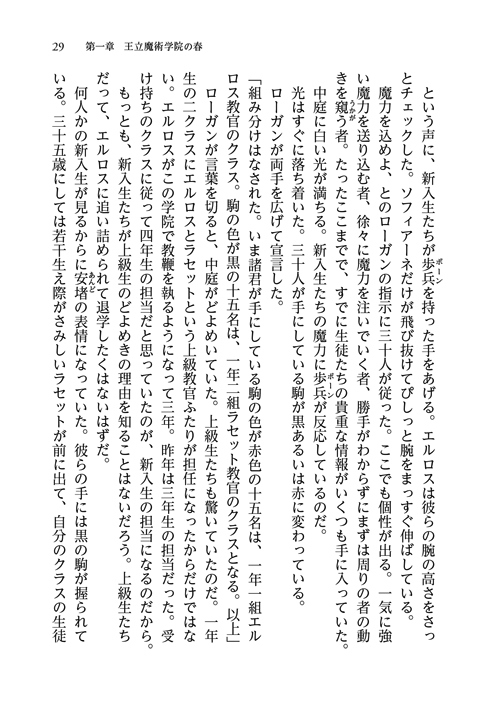 29　第一章　王立魔術学院の春
　という声に、新入生たちが歩兵を持った手をあげる。エルロスは彼らの腕の高さをさっ
とチェックした。ソフィアーネだけが飛び抜けてぴしっと腕をまっすぐ伸ばしている。
　魔力を込めよ、とのローガンの指示に三十人が従った。ここでも個性が出る。一気に強
い魔力を送り込む者、徐々に魔力を注いでいく者、勝手がわからずにまずは周りの者の動
きを窺う者。たったここまでで、すでに生徒たちの貴重な情報がいくつも手に入っていた。
　中庭に白い光が満ちる。新入生たちの魔力に歩兵が反応しているのだ。
　光はすぐに落ち着いた。三十人が手にしている駒が黒あるいは赤に変わっている。
　ローガンが両手を広げて宣言した。
「組み分けはなされた。いま諸君が手にしている駒の色が赤色の十五名は、一年一組エル
ロス教官のクラス。駒の色が黒の十五名は、一年二組ラセット教官のクラスとなる。以上」
　ローガンが言葉を切ると、中庭がどよめいていた。上級生たちも驚いていたのだ。一年
生の二クラスにエルロスとラセットという上級教官ふたりが担任になったからだけではな
い。エルロスがこの学院で教鞭を執るようになって三年。昨年は三年生の担当だった。受
け持ちのクラスに従って四年生の担当だと思っていたのが、新入生の担当になるのだから。
　もっとも、新入生たちが上級生のどよめきの理由を知ることはないだろう。上級生たち
だって、エルロスに追い詰められて退学したくはないはずだ。
　何人かの新入生が見るからに安堵の表情になっていた。彼らの手には黒の駒が握られて
いる。三十五歳にしては若干生え際がさみしいラセットが前に出て、自分のクラスの生徒